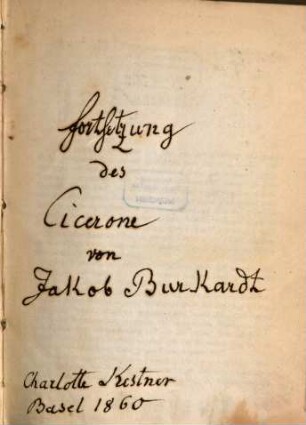 fortsetzung
des
Cicerone
von
Jakob Burkardt
Charlotte Kestner
Basel 1860